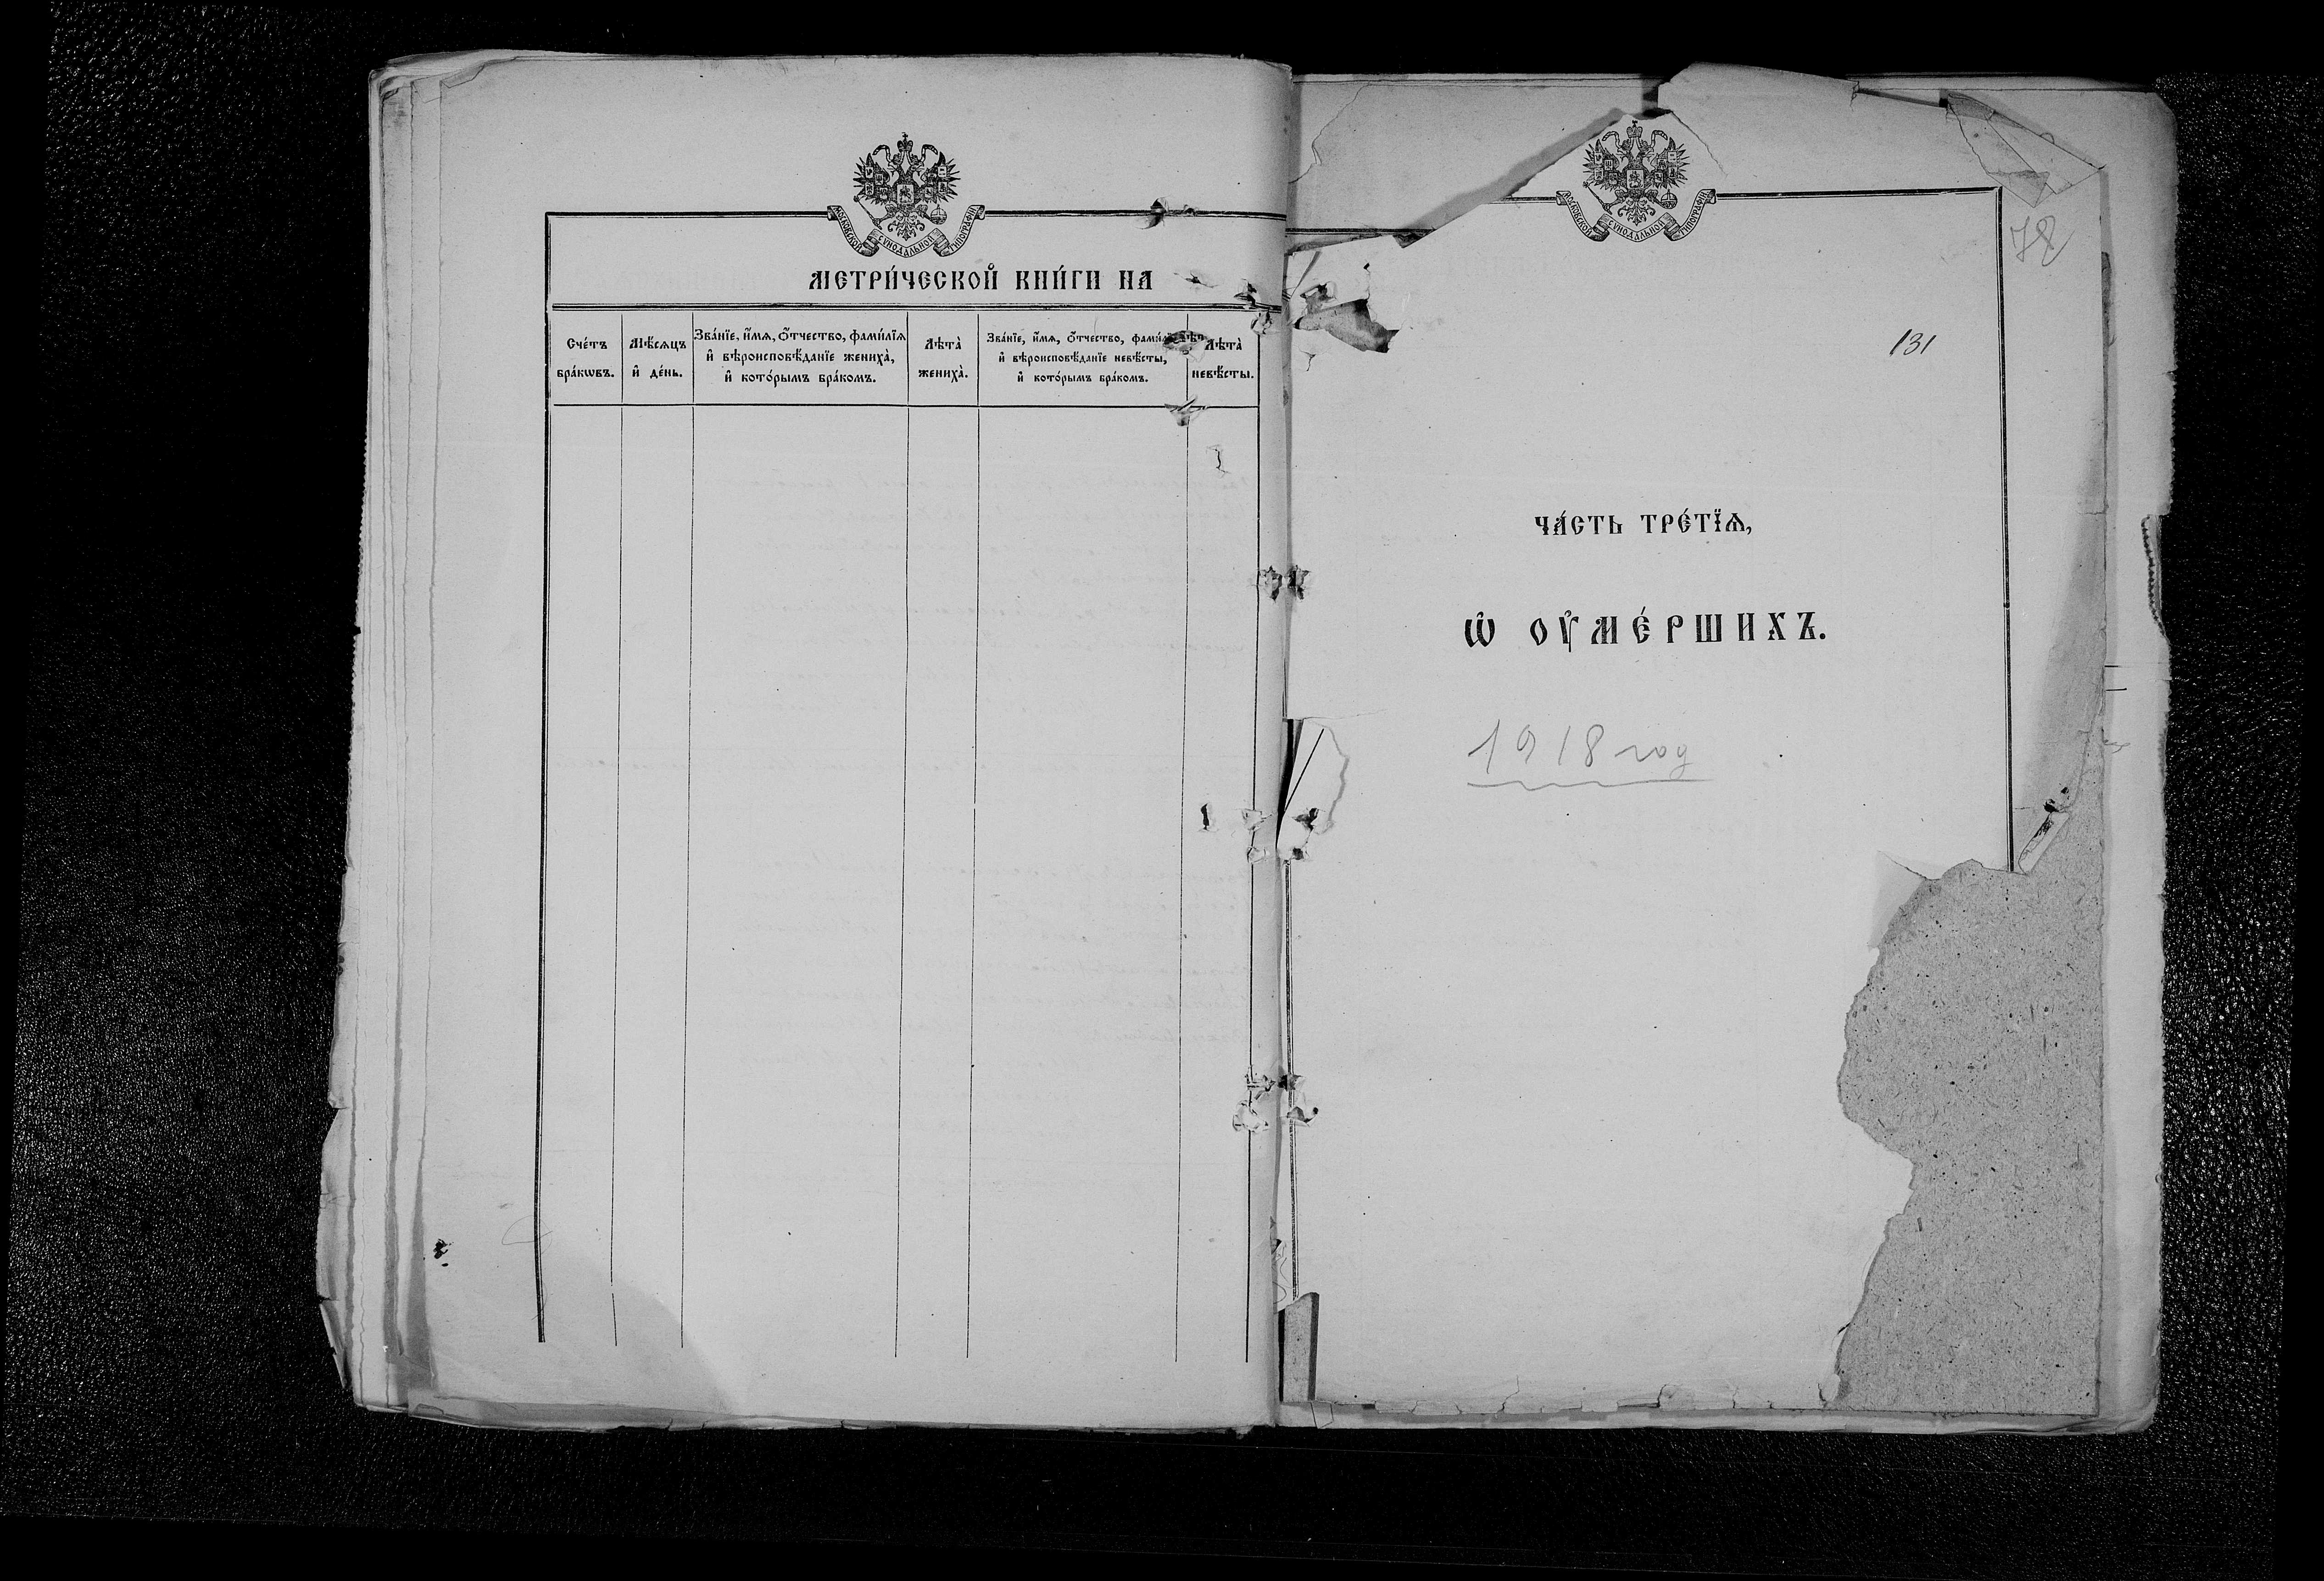 МОСКОВСКОЙ СѴНОДАЛЬНОЙ ТИПОГРАФІИ
МЕТРИ́ЧЕСКОЙ КНИ́ГИ НА
Сче́тъ
бра́кѡвъ.
Мѣ́сѧцъ
и҆ де́нь.
Зва́нїе, и҆́мѧ, ѻ҆́тчество, фами́лїѧ
и҆ вѣроисповѣ́данїе жениха̀,
и҆ кото́рымъ бра́комъ.
Лѣта̀
жениха̀.
Зва́нїе, и҆́мѧ, ѻ҆́тчество,
и҆ вѣроисповѣ́данїе невѣ́сты,
и҆ кото́рымъ бра́комъ.
Лѣта̀
невѣ́сты.
МОСКОВСКОЙ СѴНОДАЛЬНОЙ ТИПОГРАФІИ
78
131
ЧА́СТЬ ТРЕ́ТЇѦ,
Ѡ҆ ОУ҆МЕ́РШИХЪ.
1918 год